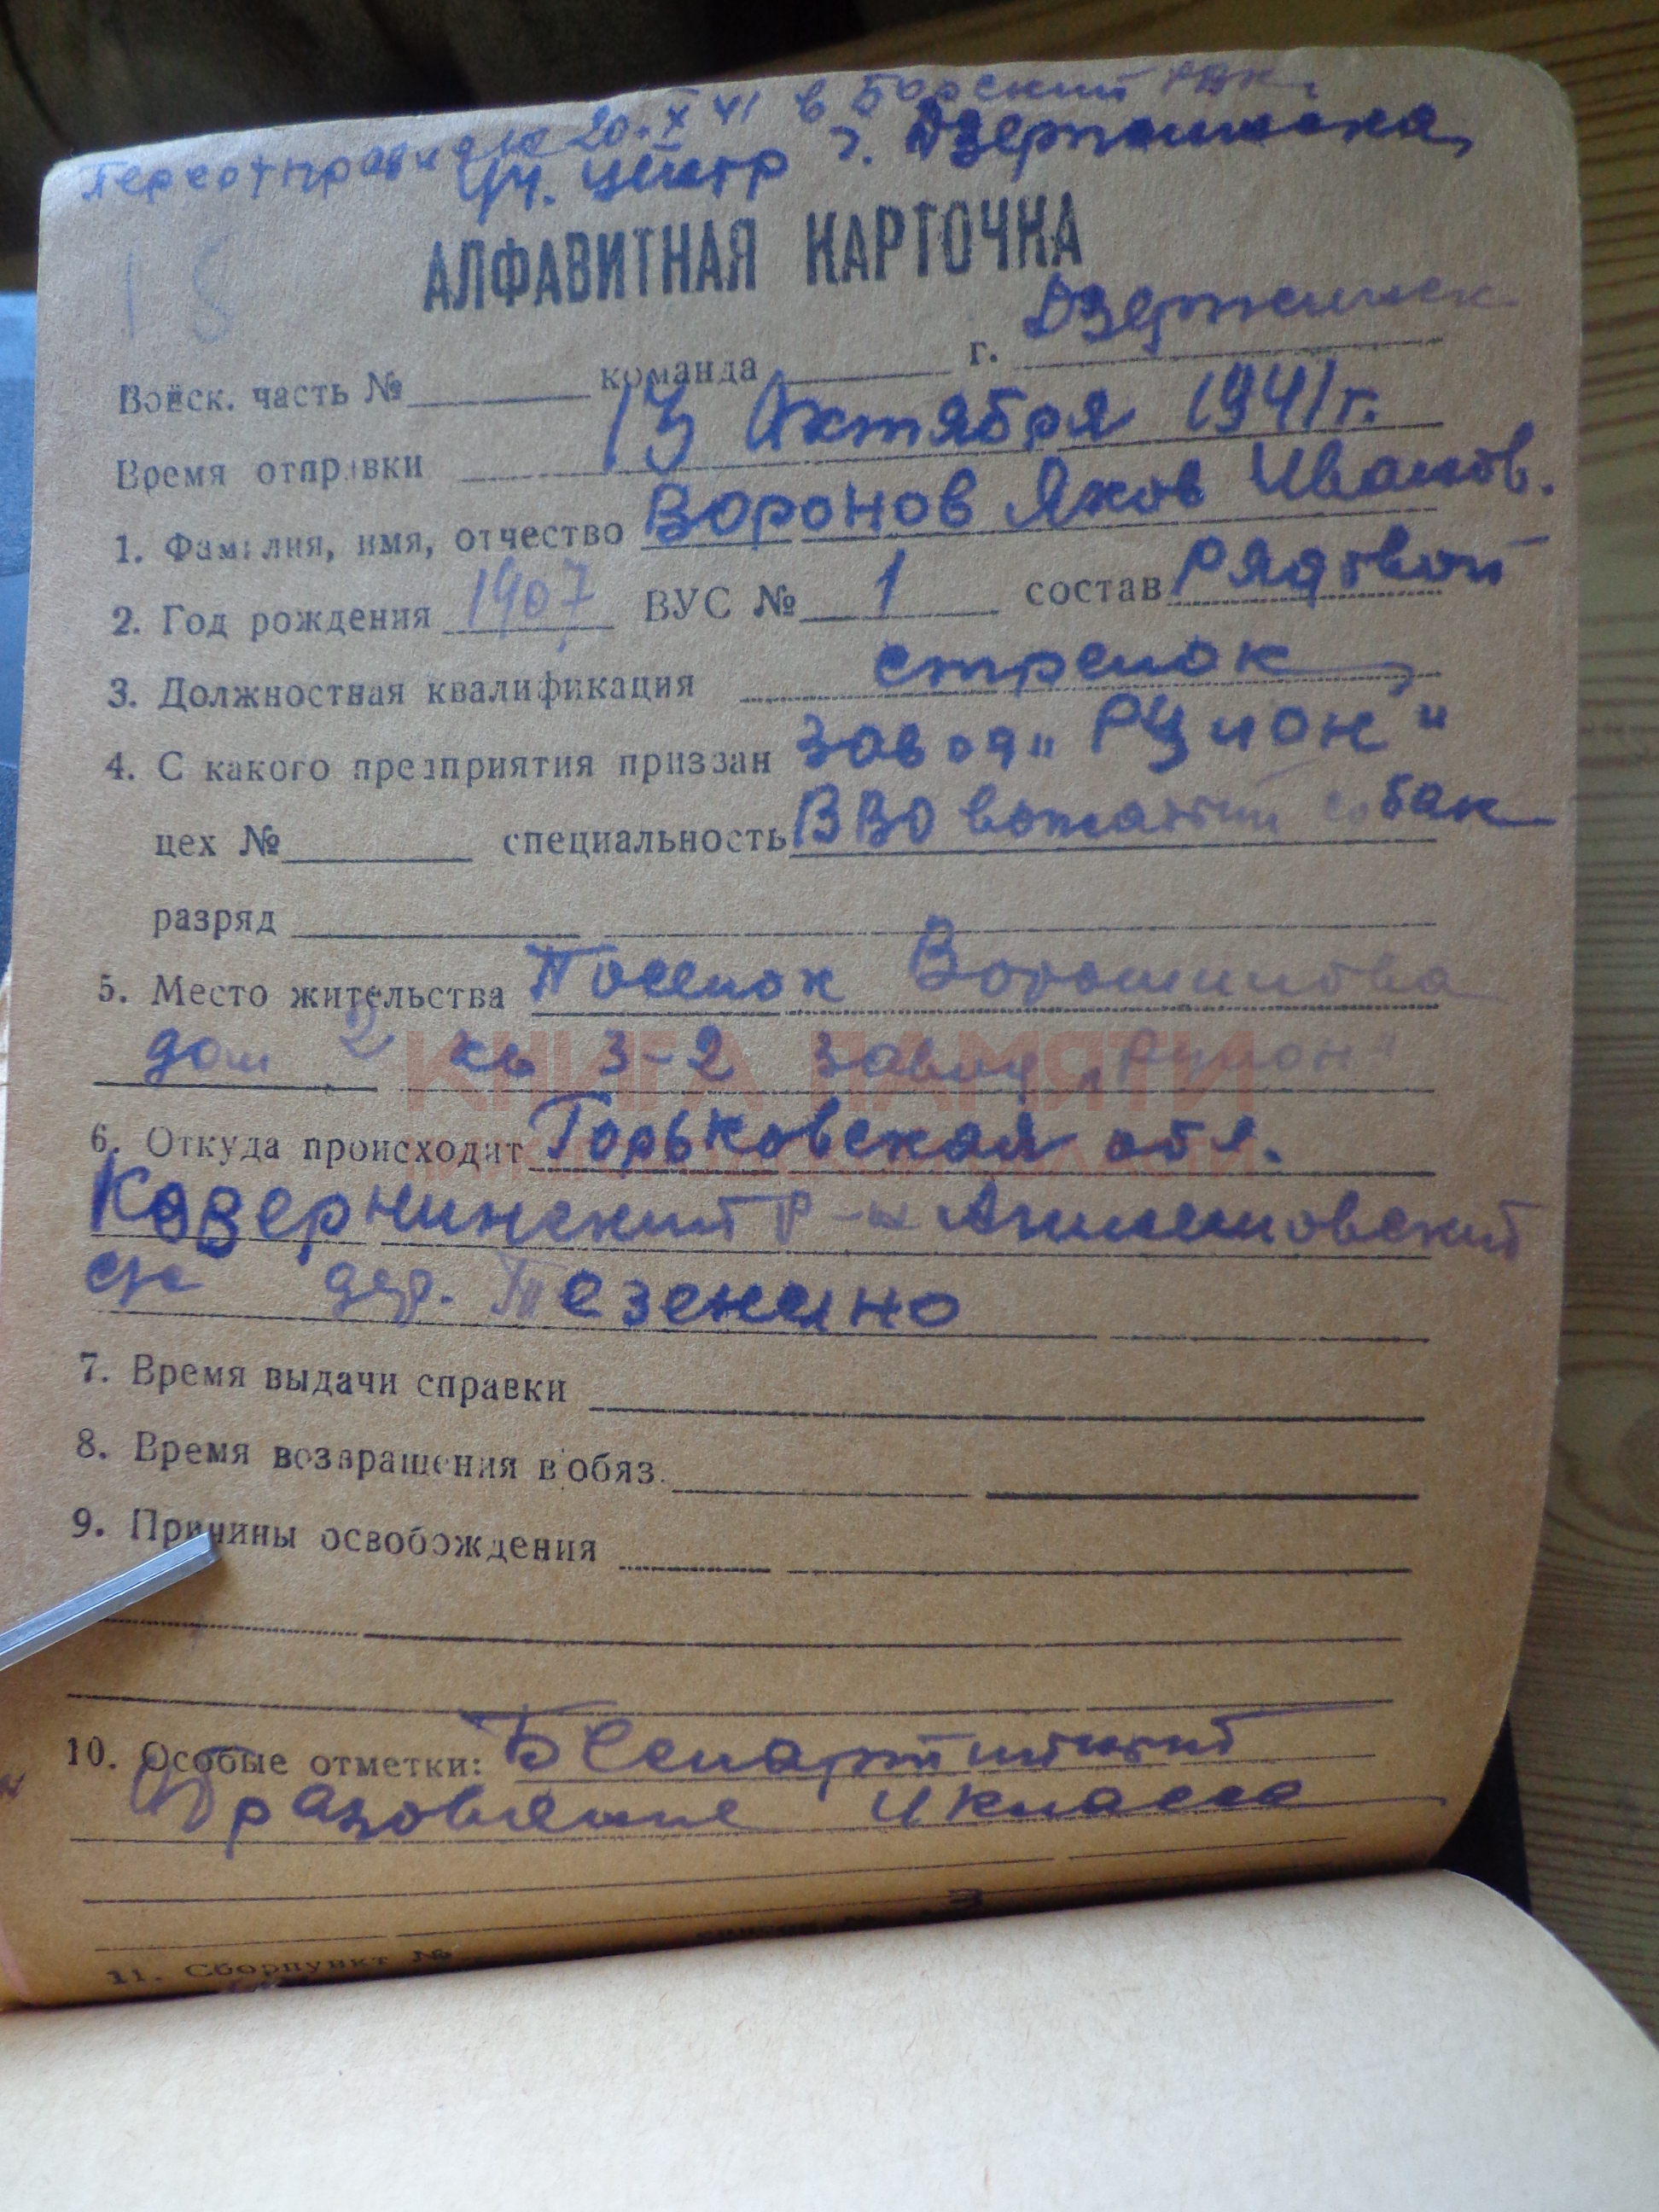 Переотправлен 20.X 41 в Борский РВК.
Уч. центр г. Дзержинска,
АЛФАВИТНАЯ КАРТОЧКА
Войск. часть № команда г. Дзержинск
Время отправки 13 Октября 1941 г.
1. Фамилия, имя, отчество Воронов Яков Иванов.
2. Год рождения 1907 ВУС № 1 состав Рядовой
3. Должностная квалификация стрелок
4. С какого предприятия призван завод „Рулон"
цех № специальность ВВО вожатый собак
разряд
5. Место жительства Поселок Ворошилова
дом 2 кв 3-2 завод
КНИГА ПАМЯТИ
6. Откуда происходит Горьковская обл.
Ковернинский р-н
с/с дер.
7. Время выдачи справки
8. Время возвращения в обяз.
9. Причины освобождения
10. Особые отметки: Беспартийный
Образование 4 класса
11. Сборпункт №